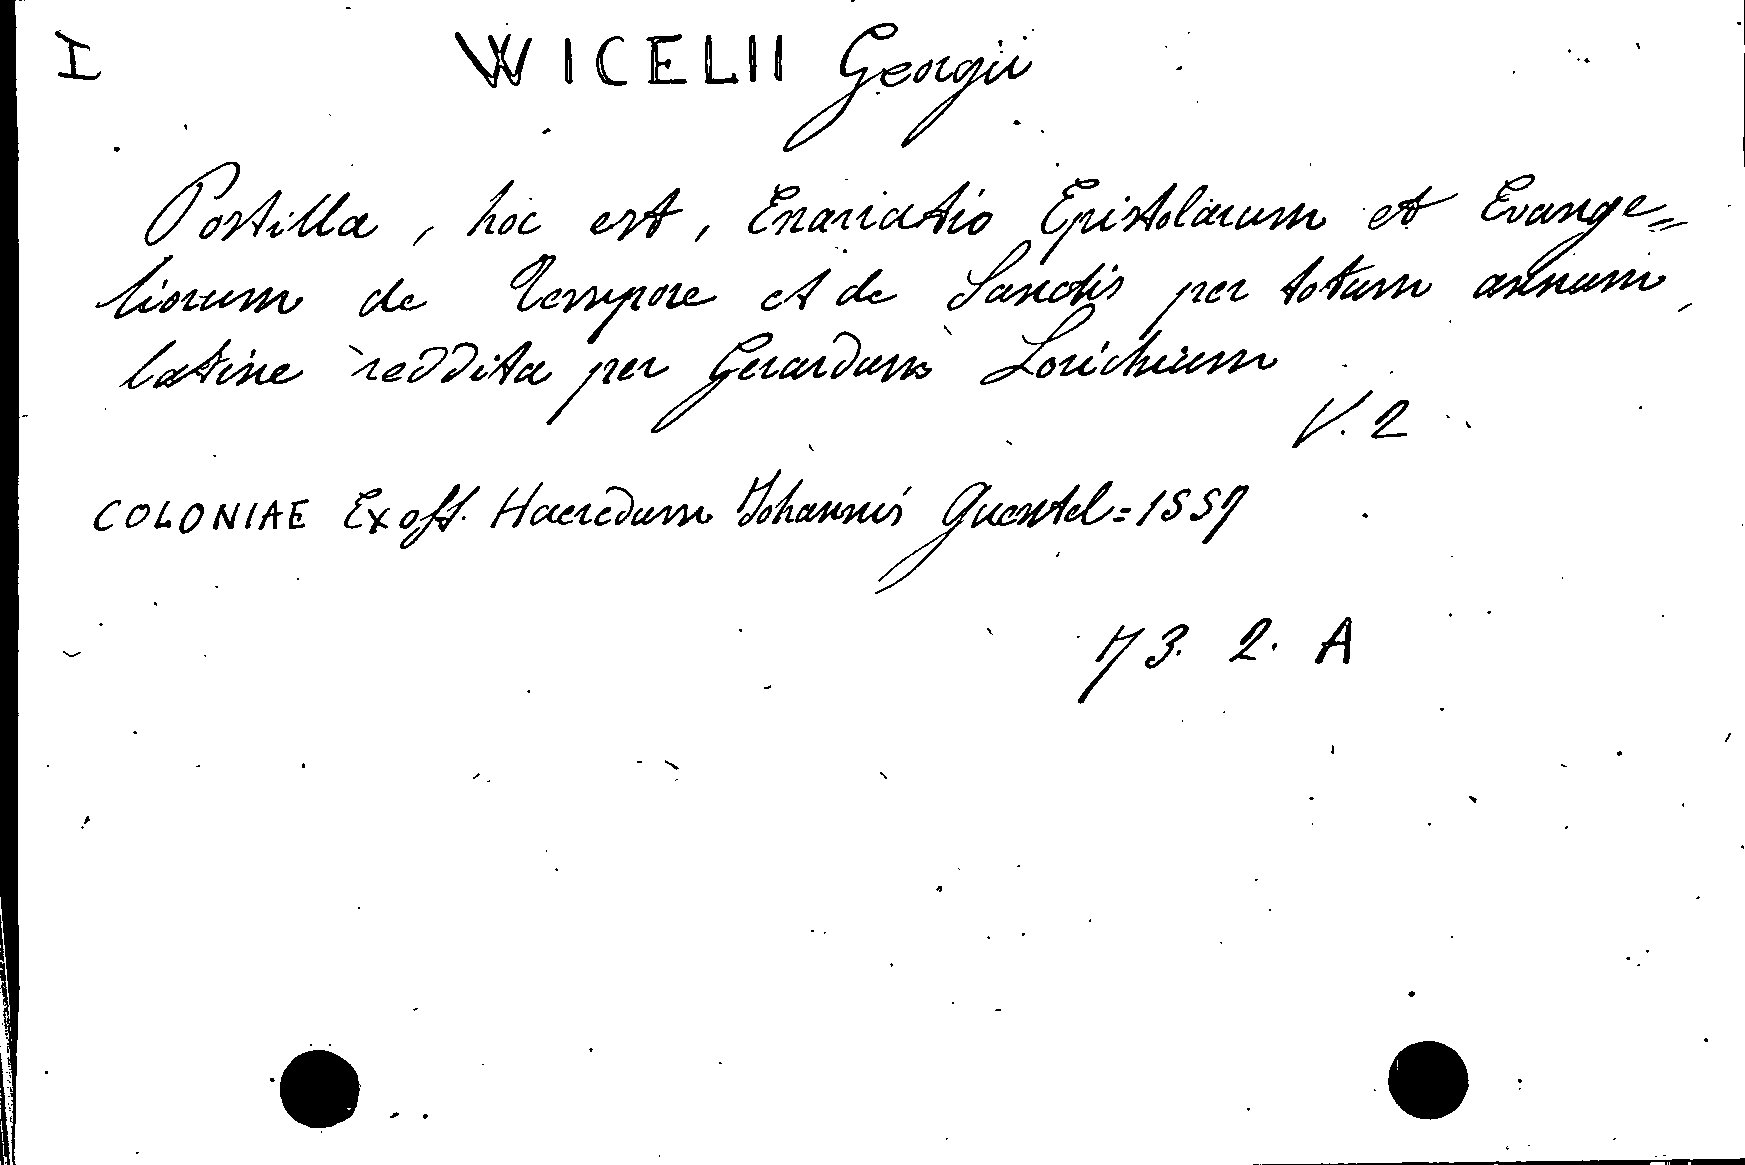 I WICELII Georgii
Postilla, hoc est, Enarratio Epistolarum et Evange=
liorum de Tempore et de Sanctis per totum annum,
latine reddita per Gerardum Lorichium
V. 2
COLONIAE Ex off. Haeredum Johannis Quentel = 1557
73. 2. A